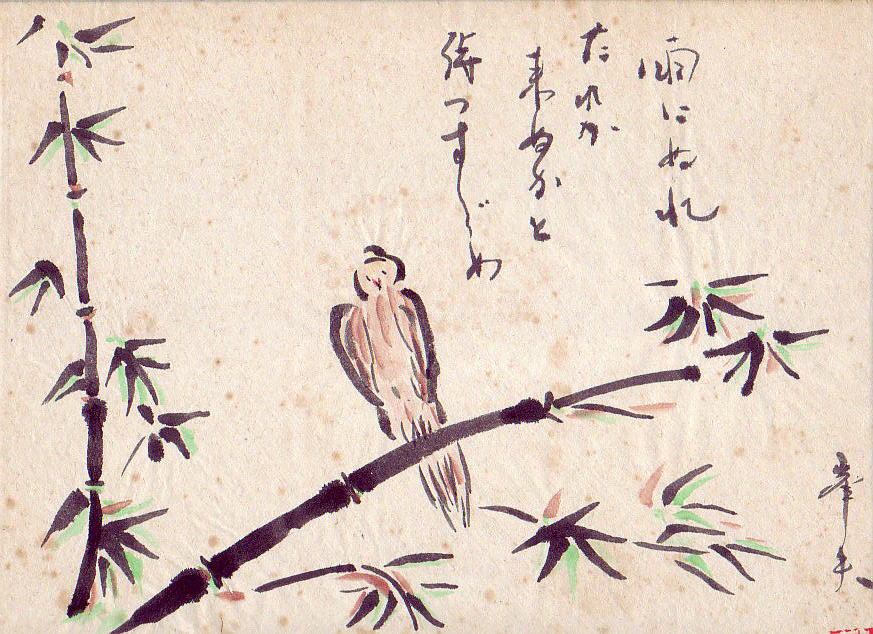 雨にぬれ
たれか
来ぬかと
待つすゞめ
峯夫